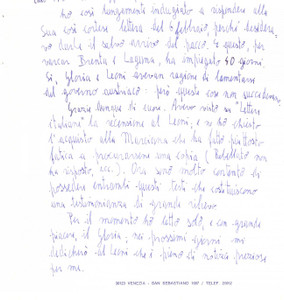 Ho così lungamente indugiato a rispondere alla
Sua così cortese lettera del 6 febbraio, perché desidera-
vo darle il salvo arrivo del pacco. E questo, per
varcar Brenta e Laguna, ha impiegato 40 giorni.
Sì, Gloria e Leoni avevan ragione di lamentarsi
del governo austriaco: però queste cose non succedevano.
Grazie dunque di cuore. Avevo visto su "Lettere
italiane" la recensione al Leoni, e ne ho chiesto
l'acquisto alla Marciana che ha fatto piuttosto
fatica a procurarsene una copia (Rebellato non
ha risposto, ecc.). Ora sono molto contento di
possedere entrambi questi testi che costituiscono
una testimonianza di grande rilievo.
Per il momento ho letto solo, e con grande
piacere, il Gloria, nei prossimi giorni mi
dedicherò al Leoni che è pieno di notizie preziose
per me.
VENEZIA - SAN SEBASTIANO / TELEF.